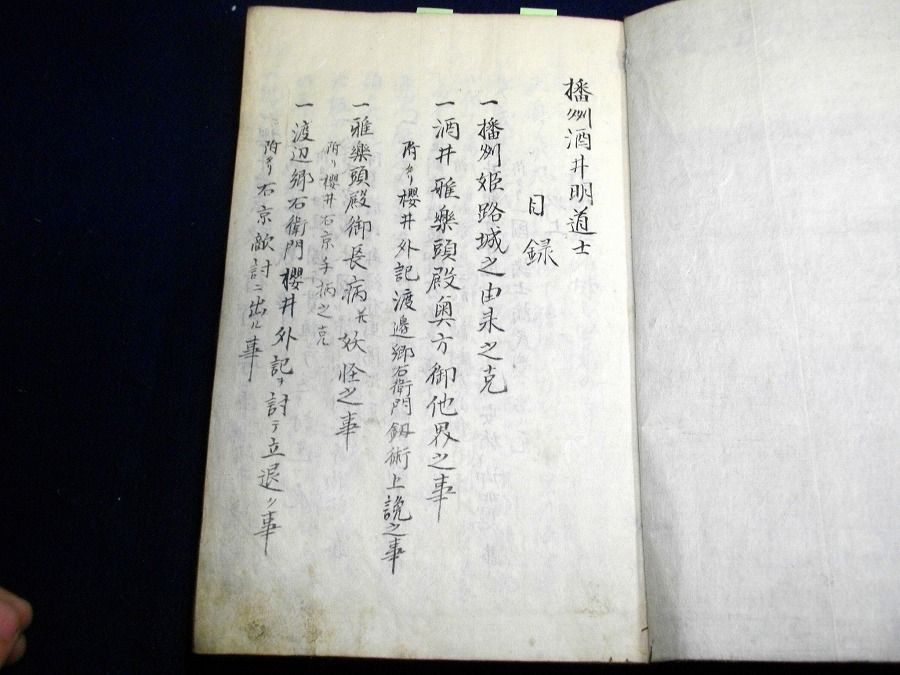 播州酒井明道士
目録
一播州姫路城之由来之克
一酒井雅樂頭殿奥方御他界之事
附タリ櫻井外記渡邊郷右衛門釼術上覧之事
一雅樂頭殿御長病并妖怪之事
附リ櫻井右京手柄之克
一渡辺郷右衛門櫻井外記ヲ討テ立退ク事
附タリ右京敵討ニ出ル事